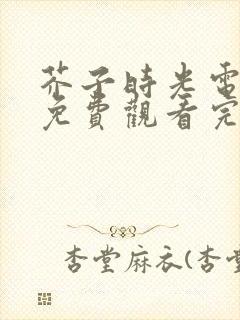 芥子時光電
免費觀看完
杏堂麻衣(杏堂